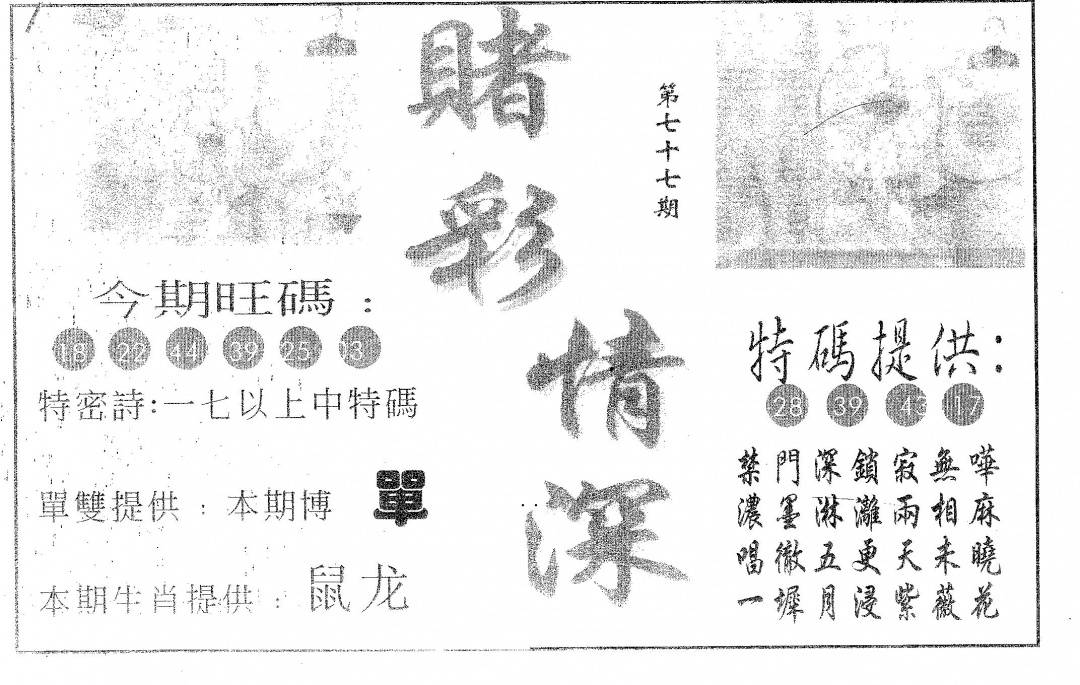 賭彩情深
第七十七期
今期旺碼：
18 22 44 39 25
特密詩：一七以上中特碼
單雙提供：本期博 單
本期生肖提供：鼠龙
特碼提供：
28 39 43 17
禁門深鎖寂無嘩
濃墨淋灕兩相麻
唱徹五更天未曉
一墀月浸紫薇花